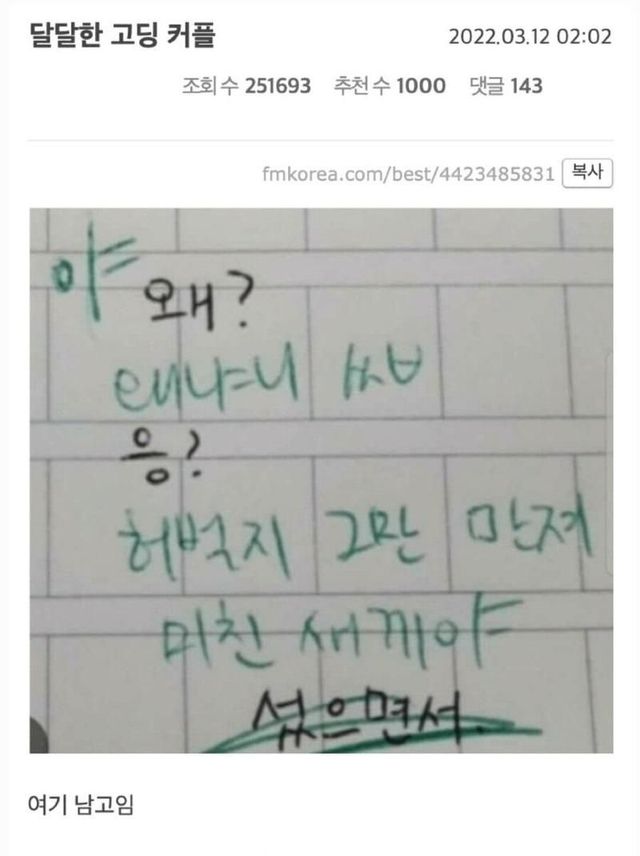 달달한 고딩 커플 2022.03.12 02:02
조회 수 251693 추천 수 1000 댓글 143
fmkorea.com/best/4423485831 복사
야 왜?
응?
허벅지 그만 만져
미친 새끼야
섰으면서
여기 남고임